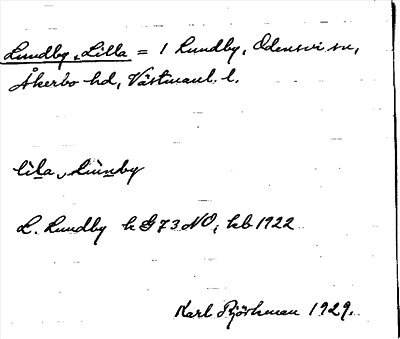 Lundby, Lilla = 1 Lundby, Odensvi sn,
Åkerbo hd, Västmanl. l.
lila, Lundby
L. Lundby k G 73 NO, kb 1922
Karl Björkman 1929.